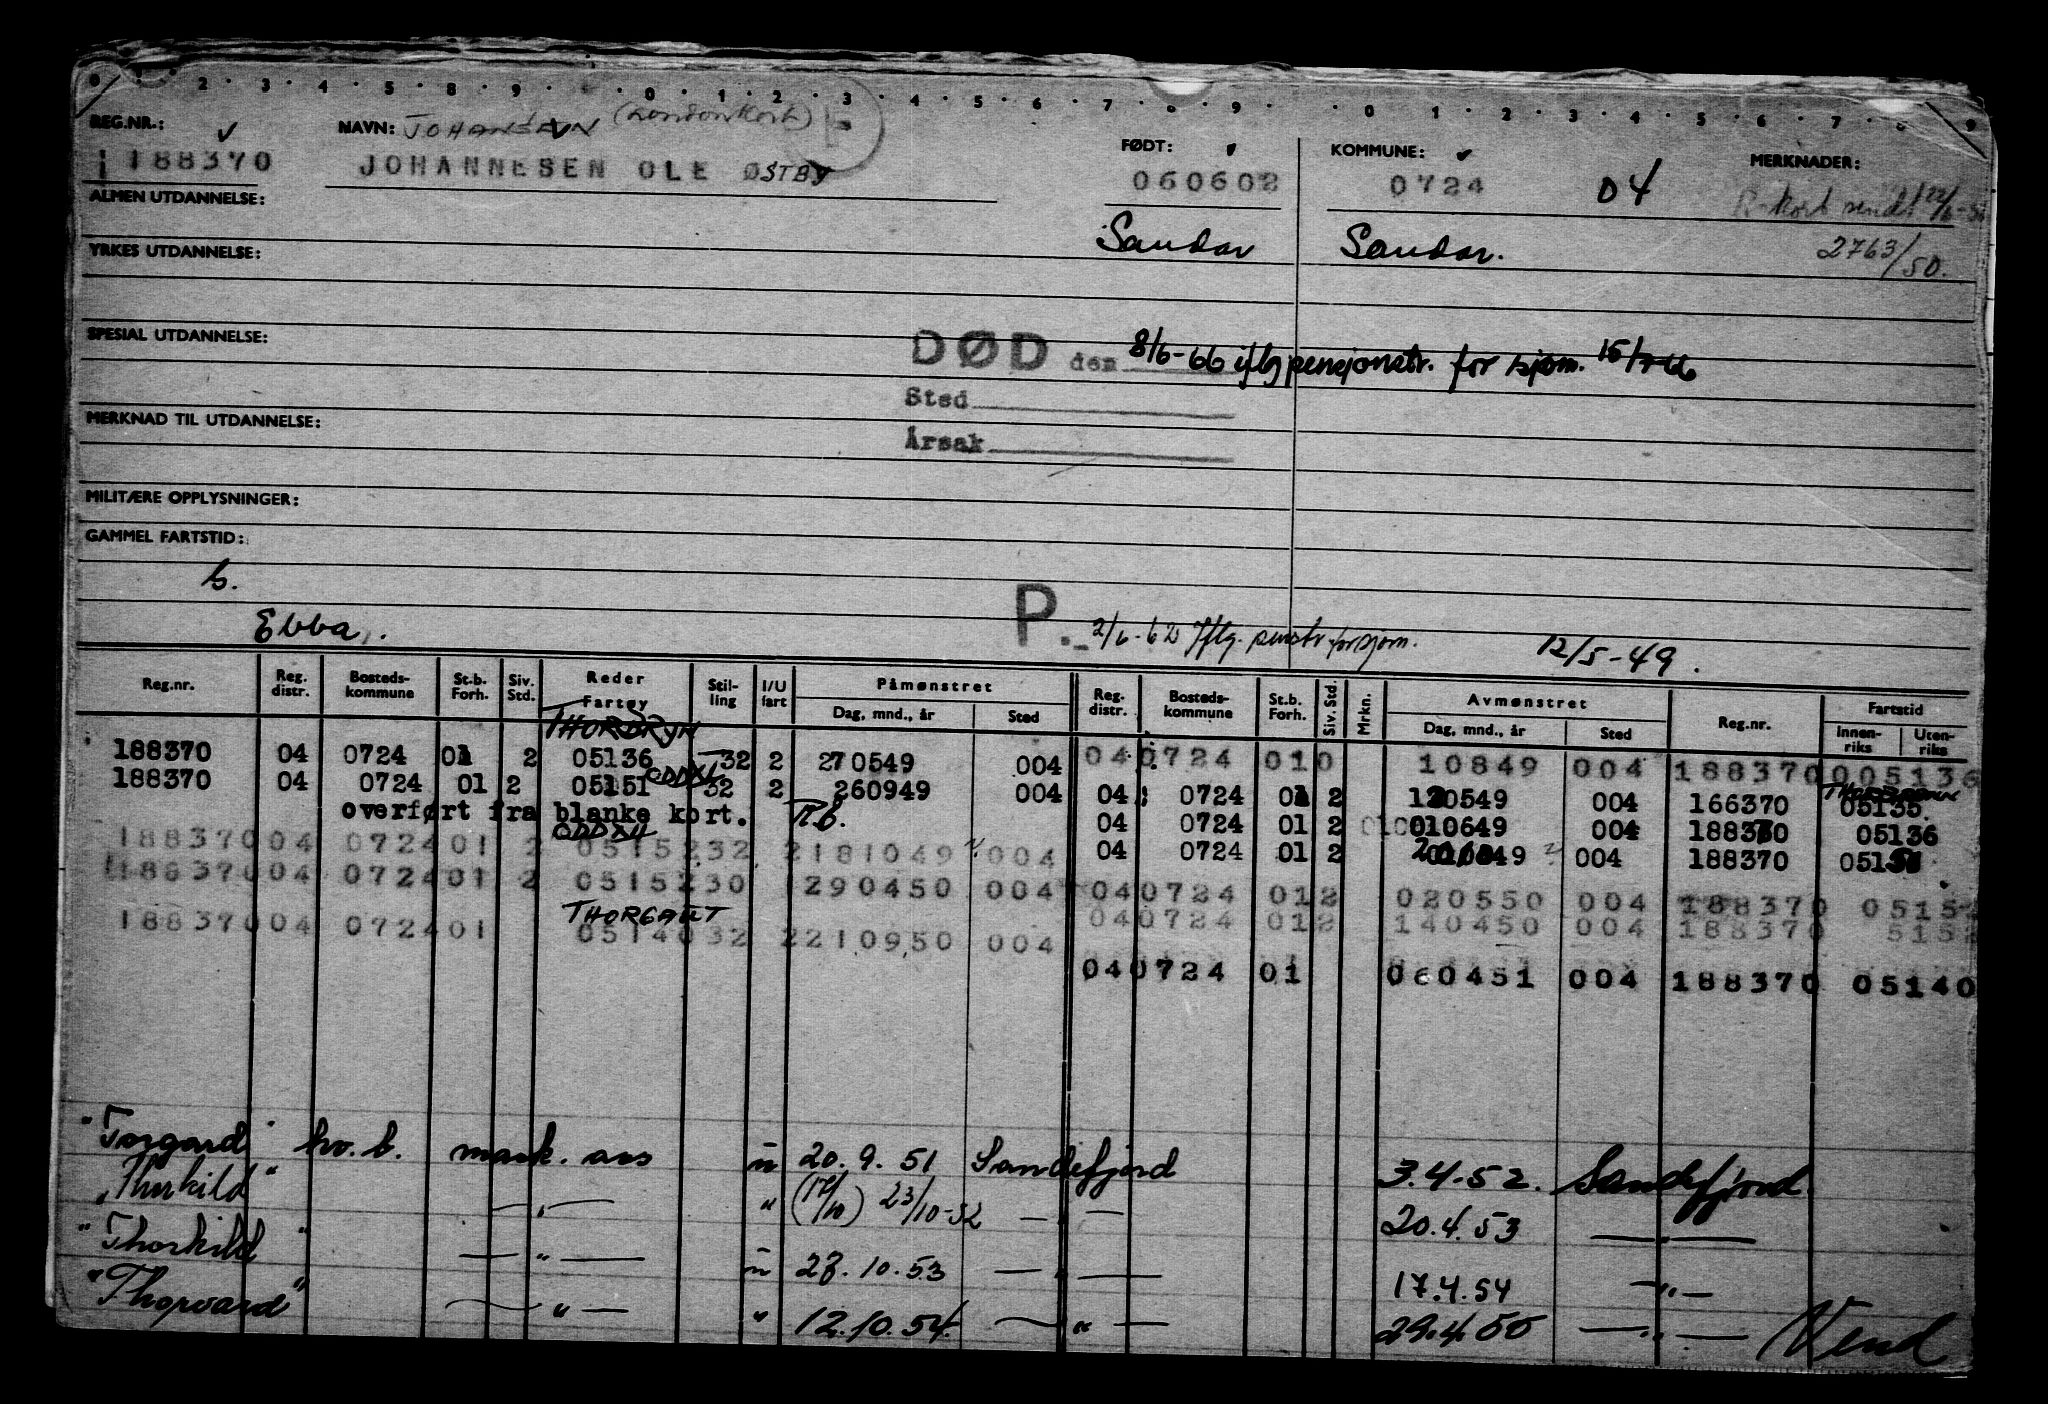 0 · 1 · 2 · 3 · 4 · 5 · 8 · 9 · · 0 · 1 · 2 · 3 · 4 · 5 · 6 · 7 · 8 · 9 · · 0 · 1 · 2 · 3 · 4 · 5 · 6 · 7 · 8 · 9
REG.NR.: NAVN: JOHANSEN (Londonkort) FØDT: KOMMUNE: MERKNADER:
188370 JOHANNESEN OLE ØSTBY 060602 0724 04 R-kort sendt
ALMEN UTDANNELSE: Sandar Sandar. 2763/50.
YRKES UTDANNELSE:
SPESIAL UTDANNELSE:
DØD den 8/6-66 iflg pensjonstr. for sjøm. 15/7-66
Sted
Årsak
MERKNAD TIL UTDANNELSE:
MILITÆRE OPPLYSNINGER:
GAMMEL FARTSTID:
b.
Ebba. P. 2/6-62 Iflg. penstr. for sjøm. 12/5-49.
Reg.nr. Reg. distr. Bosteds-kommune St.b. Forh. Siv. Std. Reder Fartøy Stil-ling I/U fart Påmønstret Dag, mnd., år Sted Reg. distr. Bosteds-kommune St.b. Forh. Siv. Std. Mrkn. Avmønstret Dag, mnd., år Sted Reg.nr. Fartstid Innen-riks Uten-riks
THORBRYN
188370 04 0724 01 2 05136 32 2 270549 004 04 0724 010 10849 004 188370 005136
188370 04 0724 01 2 05151 ODDXL 32 2 260949 004 04 0724 01 2 120549 004 166370 05135
overført fra blanke kort. 04 0724 01 2 010649 004 188370 05136
ODDXH
188370 04 0724 01 2 05152 32 2 181049 004 04 0724 01 2 004 188370
188370 04 0724 01 2 05152 30 290450 004 04 0724 01 2 020550 004 188370 05152
THORGAUT
188370 04 0724 01 05140 32 2 210950 004 04 0724 01 2 140450 004 188370 5152
04 0724 01 060451 004 188370 05140
"Torgard" hv.b. mask. ass u 20.9.51 Sandefjord 3.4.52. Sandefjord.
"Thorkild" — " — " (17/10) 23/10-52 — " — 20.4.53 — " —
"Thorkild" — " — u 23.10.53 — " — 17.4.54 — " —
"Thorvard" — " — " 12.10.54. — " — 29.4.55 — " — Vend